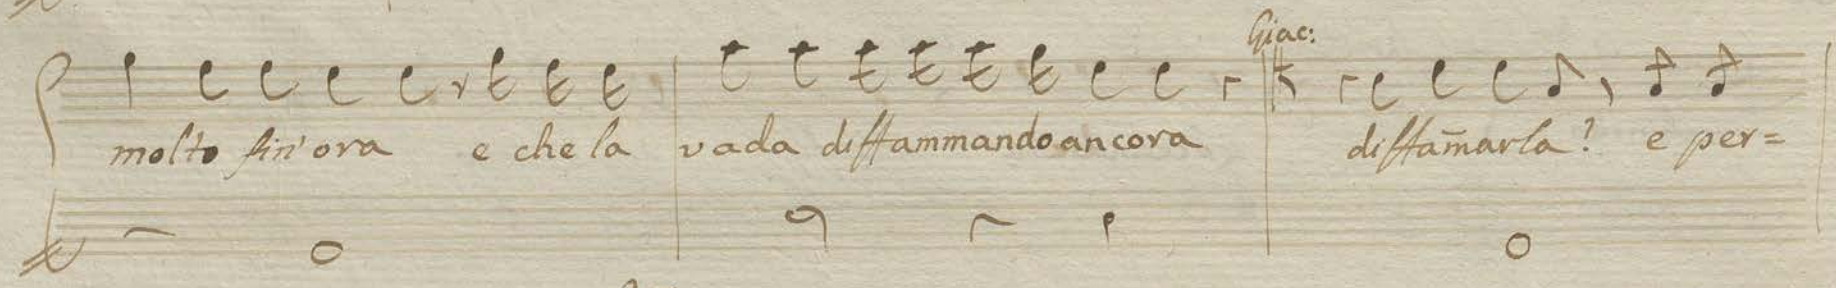 Giac:
molto fin'ora e che la vada diffammando ancora diffam̄arla? e per=